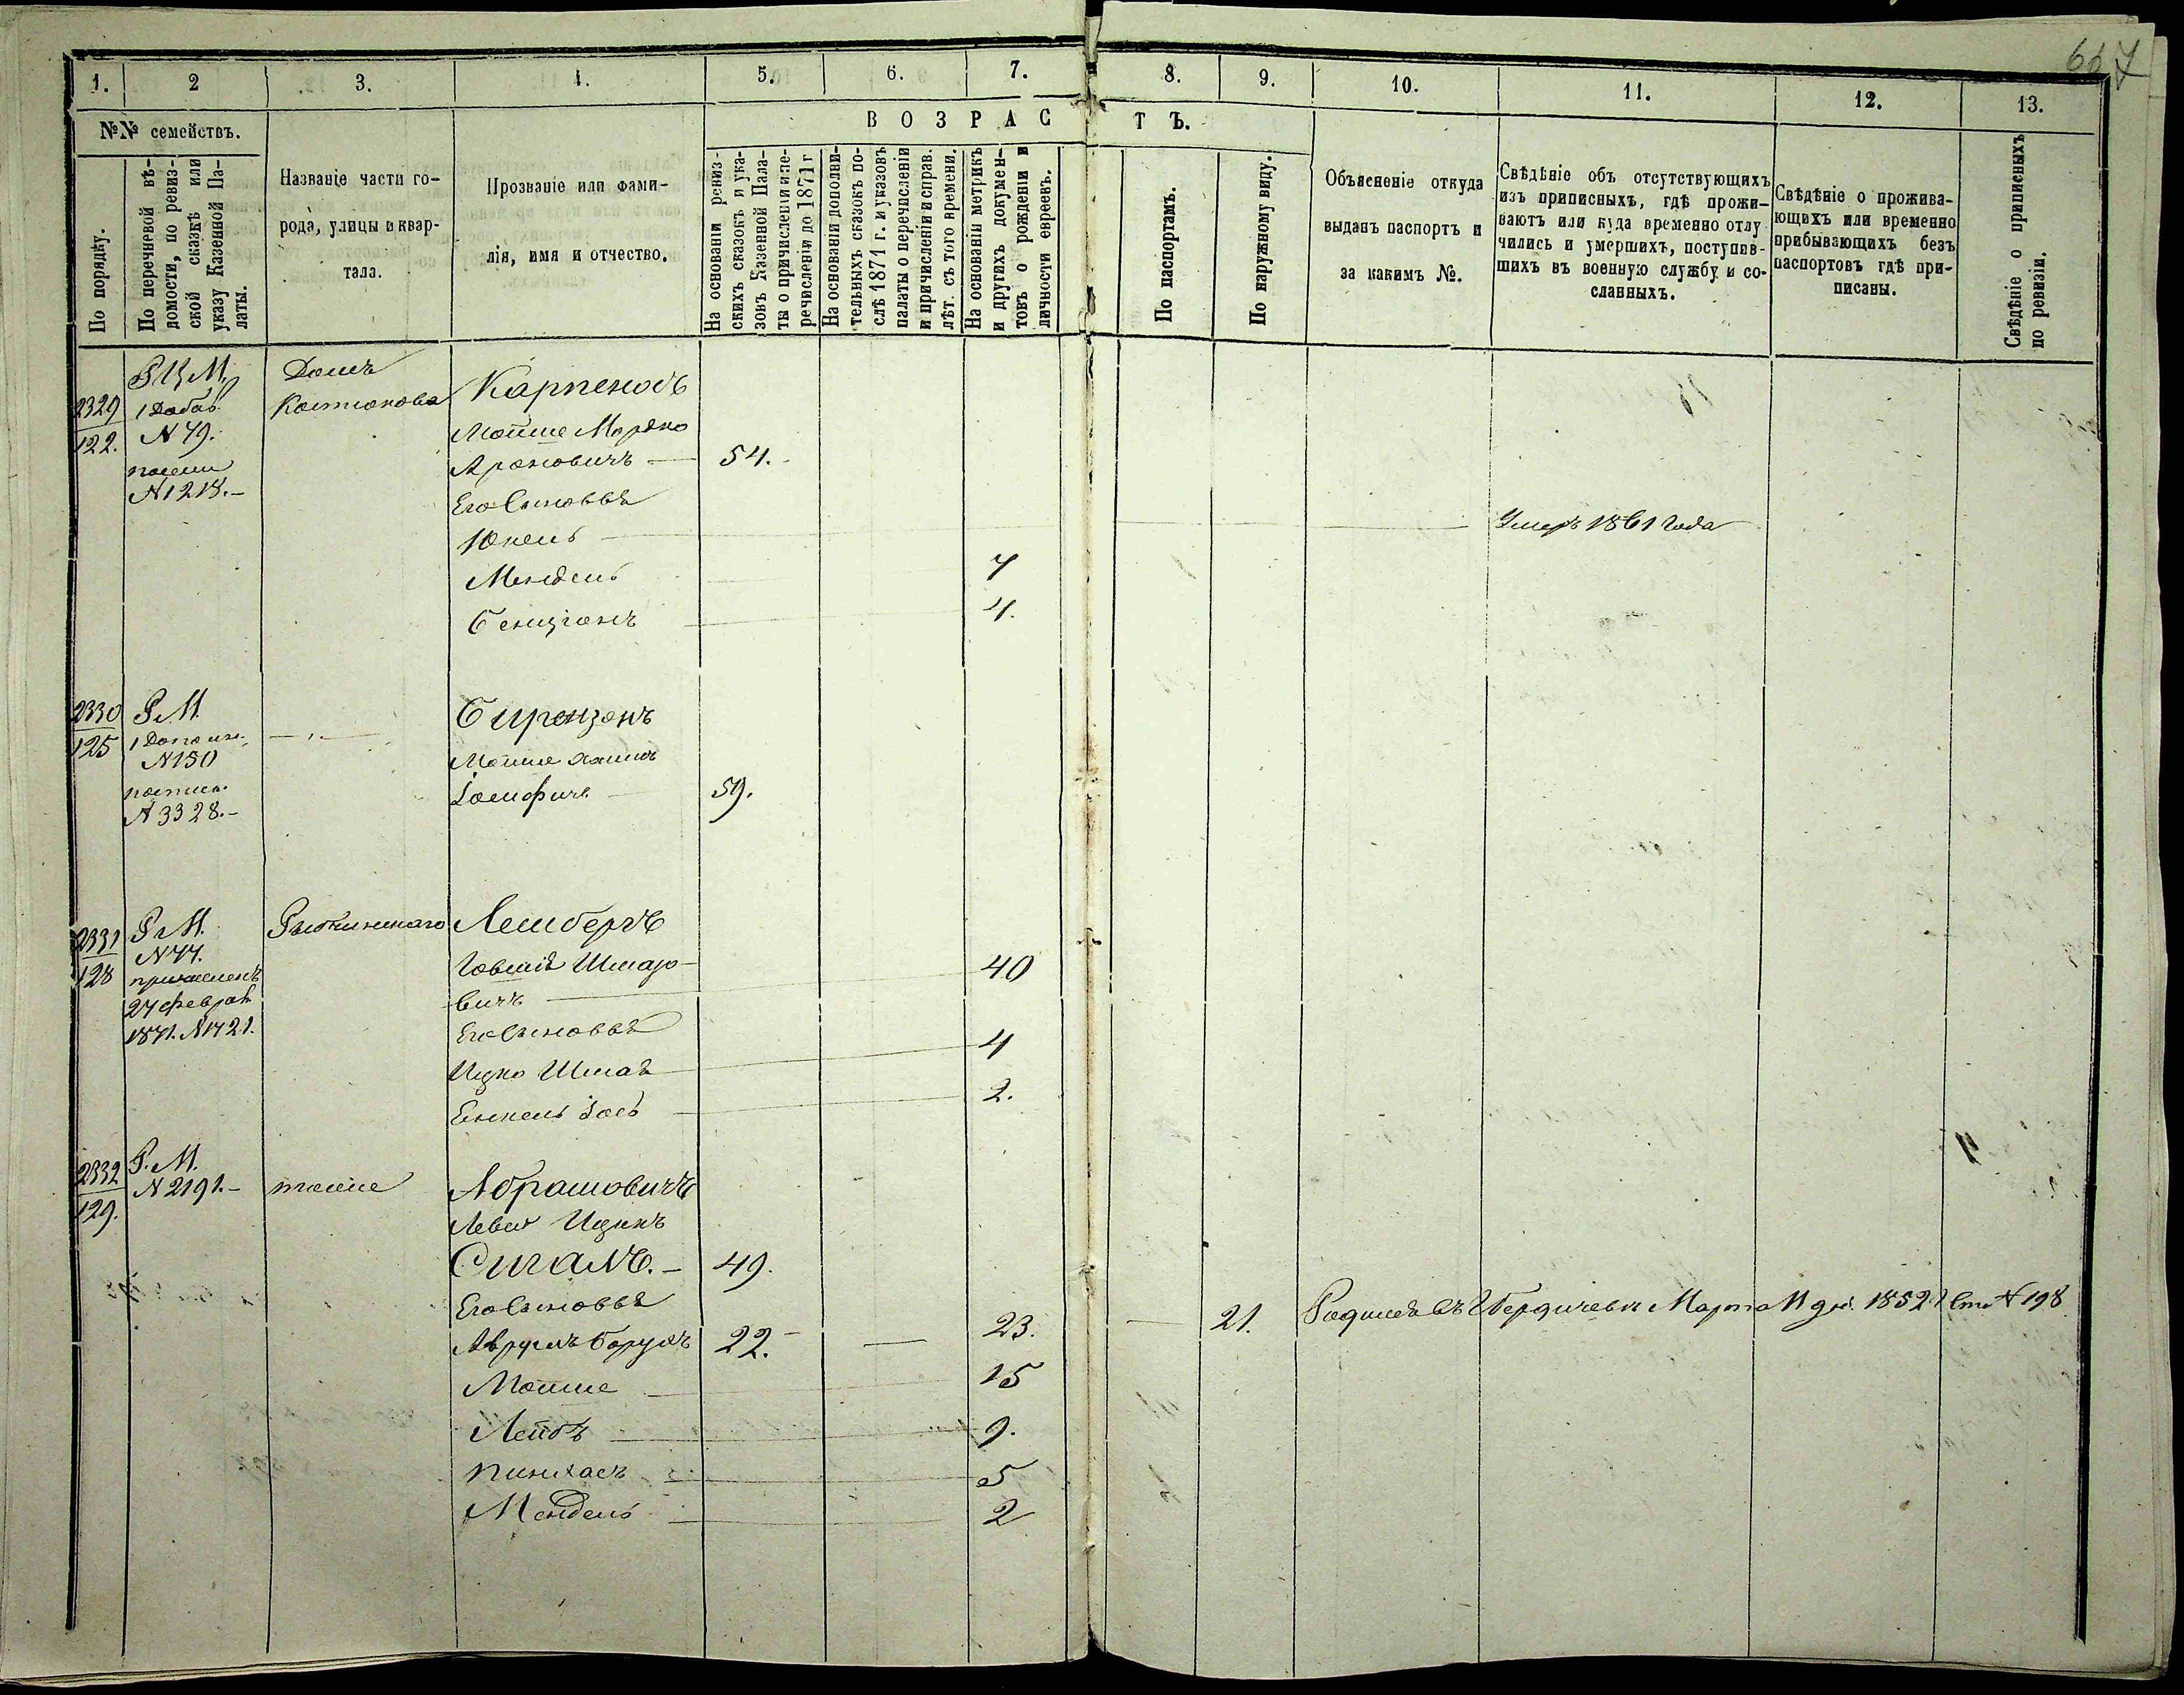 667
1.
2
3.
4.
5.
6.
7.
8.
9.
10.
11.
12.
13.
№№ семействъ.
В О З Р А С Т Ъ.
По порядку.
По перечневой вѣ-
домости, по ревиз-
ской сказкѣ или
указу Казенной Па-
латы.
Названіе части го-
рода, улицы и квар-
тала.
Прозваніе или фами-
лія, имя и отчество.
На основаніи ревиз-
скихъ сказокъ и ука-
зовъ Казенной Пала-
ты о причисленіи и пе-
речисленіи до 1871 г
На основаніи дополни-
тельныхъ сказокъ по-
слѣ 1871 г. и указовъ
палаты о перечисленіи
и причисленіи и справ.
лѣт. съ того времени.
На основаніи метрикъ
и другихъ докумен-
товъ о рожденіи и
личности евреевъ.
По паспортамъ.
По наружному виду.
Объясненіе откуда
выданъ паспортъ и
за какимъ №.
Свѣдѣніе объ отсутствующихъ
изъ приписныхъ, гдѣ прожи-
ваютъ или куда временно отлу
чились и умершихъ, поступив-
шихъ въ военную службу и со-
сланныхъ.
Свѣдѣніе о прожива-
ющихъ или временно
прибывающихъ безъ
паспортовъ гдѣ при-
писаны.
Свѣдѣніе о приписныхъ
по ревизіи.
2329
122.
Р.Ц.М.
1 Добав.
N 79.
N 1218.-
Домъ
Мошко Мордко
Ароновичъ — 54.-
Его Сыновья
Юкель — Умеръ 1861 года
Мендель 7
Бенціонъ 4.
2330
125
Р.М.
1 Дополн.
N 150
N 3328.-
— „ —
Бирензонъ
Іосифичъ — 59.
2331
128
Р.М.
N 77.
причисленъ
27 февраля
1871. N 1721.
Лемберъ
Говшія Шмаро-
вичъ — 40
Его Сыновья
Ицко Шмая 4
Енкель Іосъ 2.
2332
129.
Р.М.
N 2191.-
тоже
Абрамовичъ
Лейба Ицикъ
СИГАЛЪ.- 49.
Его Сыновья
Аврумъ Борухъ 22.- — 23. — 21. Родился въ г Бердичевѣ Марта 11 дня. 1852 г N 198
Мошко 15
Лейбъ 9.
Пинхасъ 5
Мендель 2